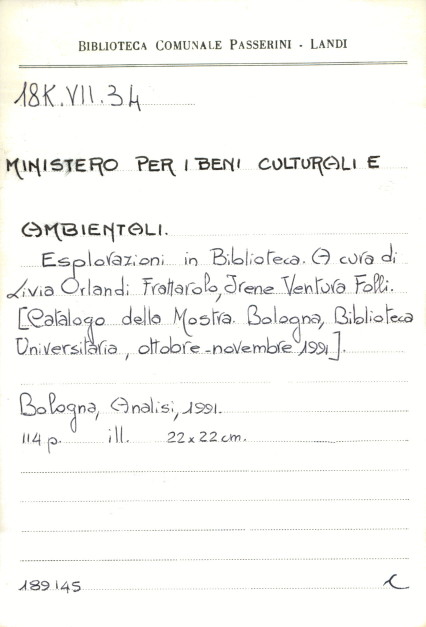 BIBLIOTECA COMUNALE PASSERINI - LANDI
18K.VII.34
MINISTERO PER I BENI CULTURALI E
AMBIENTALI.
Esplorazioni in Biblioteca. A cura di
Livia Orlandi Frattarolo, Irene Ventura Folli.
[Catalogo della Mostra. Bologna, Biblioteca
Universitaria, ottobre-novembre 1991].
Bologna, Analisi, 1991.
114 p. ill. 22x22 cm.
189145 C